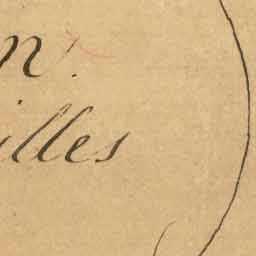 n.
illes